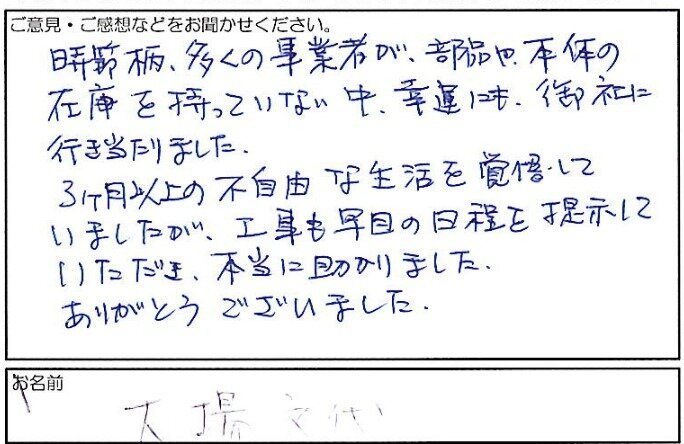 ご意見・ご感想などをお聞かせください。
時節柄、多くの事業者が、部品や本体の
在庫を持っていない中、幸運にも、御社に
行き当たりました。
3ヶ月以上の不自由な生活を覚悟して
いましたが、工事も早目の日程を提示して
いただき、本当に助かりました。
ありがとうございました。
お名前